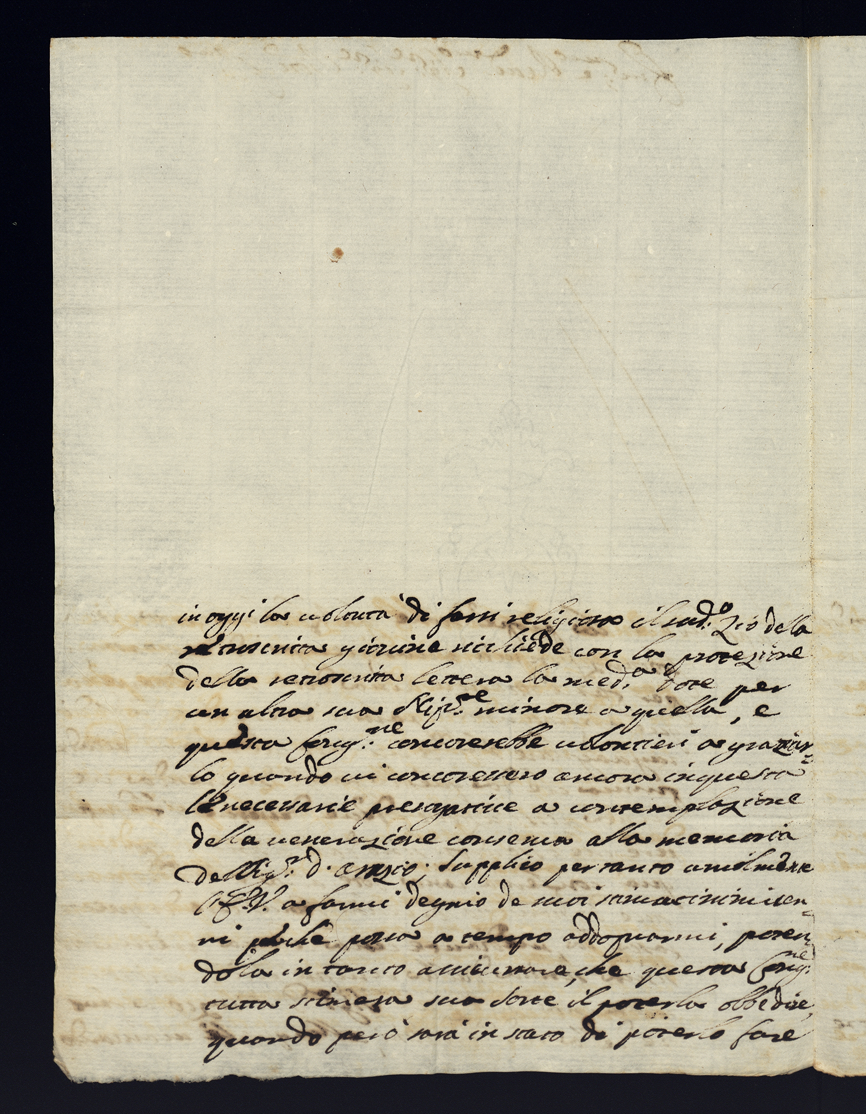 in oggi la volontà di farsi religiosa il sud.º Zio della
giovine richiede con la protezione
della retroscritta lettera la med.ª dote per
un altra sua Nip.te minore a quella, e
questa Cong.ne concorerebbe volontieri a graziar-
lo quando vi concoressero ancora in questa
le necessarie prerogative a contemplazione
della venerazione conserva alla memoria
del Sig.r D. Orazio; supplico per tanto umilmente
a farmi degno de suoi stimatissimi cen-
ni perche possa a tempo addoprarmi, poten-
dola in tanto assicurare, che questa Cong.ne
tutta stimerà sua sorte il poterla obbedire,
quando però sarà in stato di poterlo fare